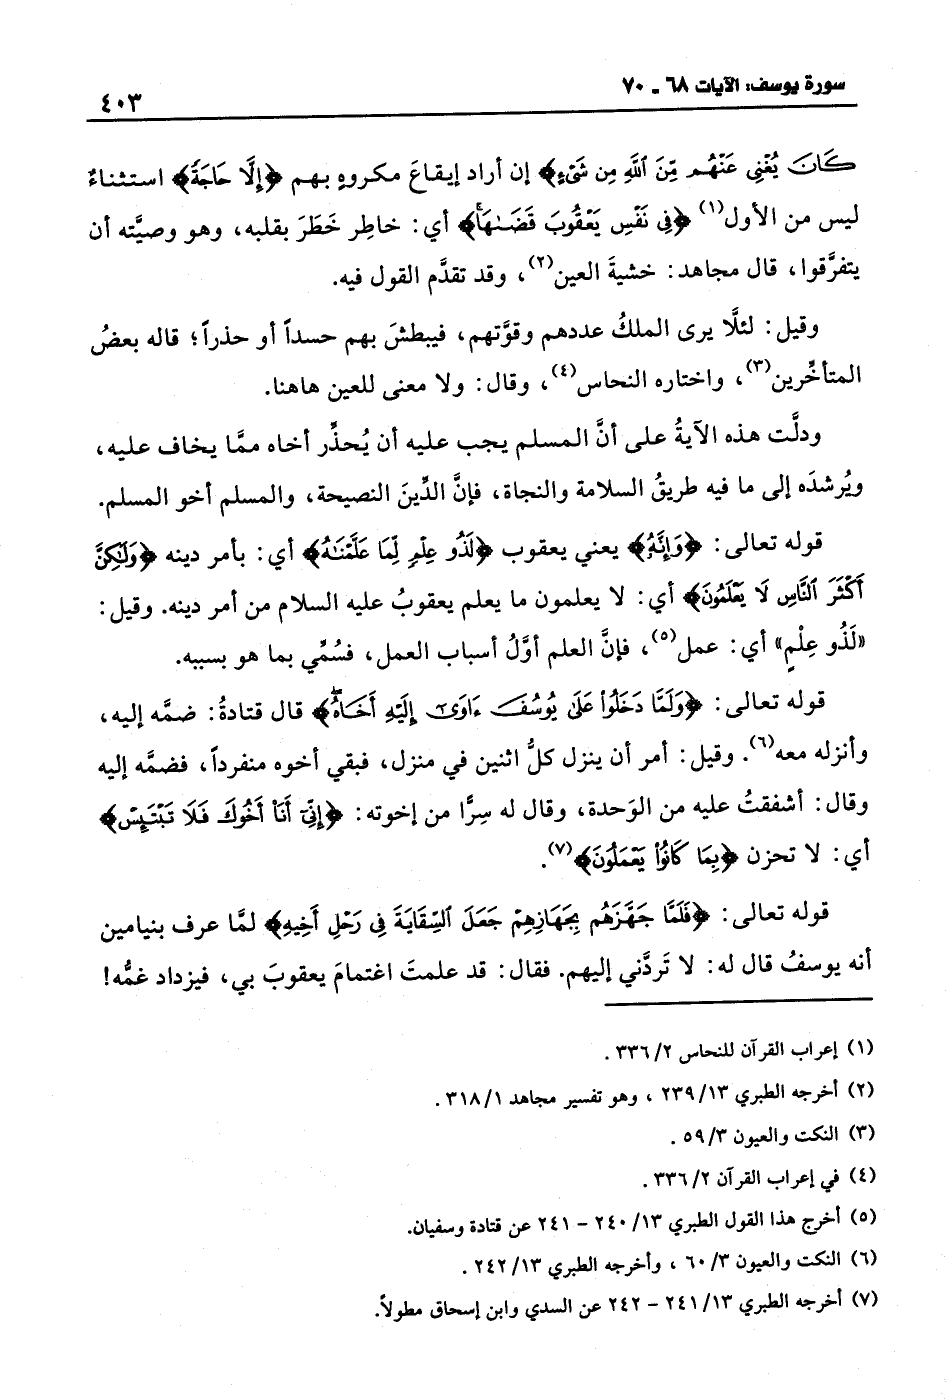 سورة يوسف: الآيات ٦٨ ـ ٧٠
٤٠٣
كَانَ يُغْنِي عَنْهُم مِّنَ ٱللَّهِ مِن شَيْءٍ﴾ إن أراد إيقاعَ مكروهٍ بهم ﴿إِلَّا حَاجَةً﴾ استثناءٌ
ليس من الأول(١) ﴿فِى نَفْسِ يَعْقُوبَ قَضَىٰهَا﴾ أي: خاطِر خَطَرَ بقلبه، وهو وصيَّته أن
يتفرَّقوا، قال مجاهد: خشيةَ العين(٢)، وقد تقدَّم القول فيه.
وقيل: لئلَّا يرى الملكُ عددهم وقوَّتهم، فيبطشَ بهم حسداً أو حذراً؛ قاله بعضُ
المتأخِّرين(٣)، واختاره النحاس(٤)، وقال: ولا معنى للعين هاهنا.
ودلَّت هذه الآيةُ على أنَّ المسلم يجب عليه أن يُحذِّر أخاه ممَّا يخاف عليه،
ويُرشدَه إلى ما فيه طريقُ السلامة والنجاة، فإنَّ الدِّينَ النصيحة، والمسلم أخو المسلم.
قوله تعالى: ﴿وَإِنَّهُۥ﴾ يعني يعقوب ﴿لَذُو عِلْمٍ لِّمَا عَلَّمْنَٰهُ﴾ أي: بأمر دينه ﴿وَلَٰكِنَّ
أَكْثَرَ ٱلنَّاسِ لَا يَعْلَمُونَ﴾ أي: لا يعلمون ما يعلم يعقوبُ عليه السلام من أمر دينه. وقيل:
«لَذُو عِلْمٍ» أي: عمل(٥)، فإنَّ العلم أوَّلُ أسباب العمل، فسُمِّي بما هو بسببه.
قوله تعالى: ﴿وَلَمَّا دَخَلُوا۟ عَلَىٰ يُوسُفَ ءَاوَىٰٓ إِلَيْهِ أَخَاهُ﴾ قال قتادةُ: ضمَّه إليه،
وأنزله معه(٦). وقيل: أمر أن ينزل كلُّ اثنين في منزل، فبقي أخوه منفرداً، فضمَّه إليه
وقال: أشفقتُ عليه من الوَحدة، وقال له سِرًّا من إخوته: ﴿إِنِّىٓ أَنَا۠ أَخُوكَ فَلَا تَبْتَئِسْ﴾
أي: لا تحزن ﴿بِمَا كَانُوا۟ يَعْمَلُونَ﴾(٧).
قوله تعالى: ﴿فَلَمَّا جَهَّزَهُم بِجَهَازِهِمْ جَعَلَ ٱلسِّقَايَةَ فِى رَحْلِ أَخِيهِ﴾ لمَّا عرف بنيامين
أنه يوسفُ قال له: لا تَردَّني إليهم. فقال: قد علمتَ اغتمامَ يعقوبَ بي، فيزداد غمُّه!
(١) إعراب القرآن للنحاس ٢/ ٣٣٦ .
(٢) أخرجه الطبري ١٣/ ٢٣٩ ، وهو تفسير مجاهد ١/ ٣١٨ .
(٣) النكت والعيون ٣/ ٥٩ .
(٤) في إعراب القرآن ٢/ ٣٣٦ .
(٥) أخرج هذا القول الطبري ١٣/ ٢٤٠ - ٢٤١ عن قتادة وسفيان.
(٦) النكت والعيون ٣/ ٦٠ ، وأخرجه الطبري ١٣/ ٢٤٢ .
(٧) أخرجه الطبري ١٣/ ٢٤١ - ٢٤٢ عن السدي وابن إسحاق مطولاً.